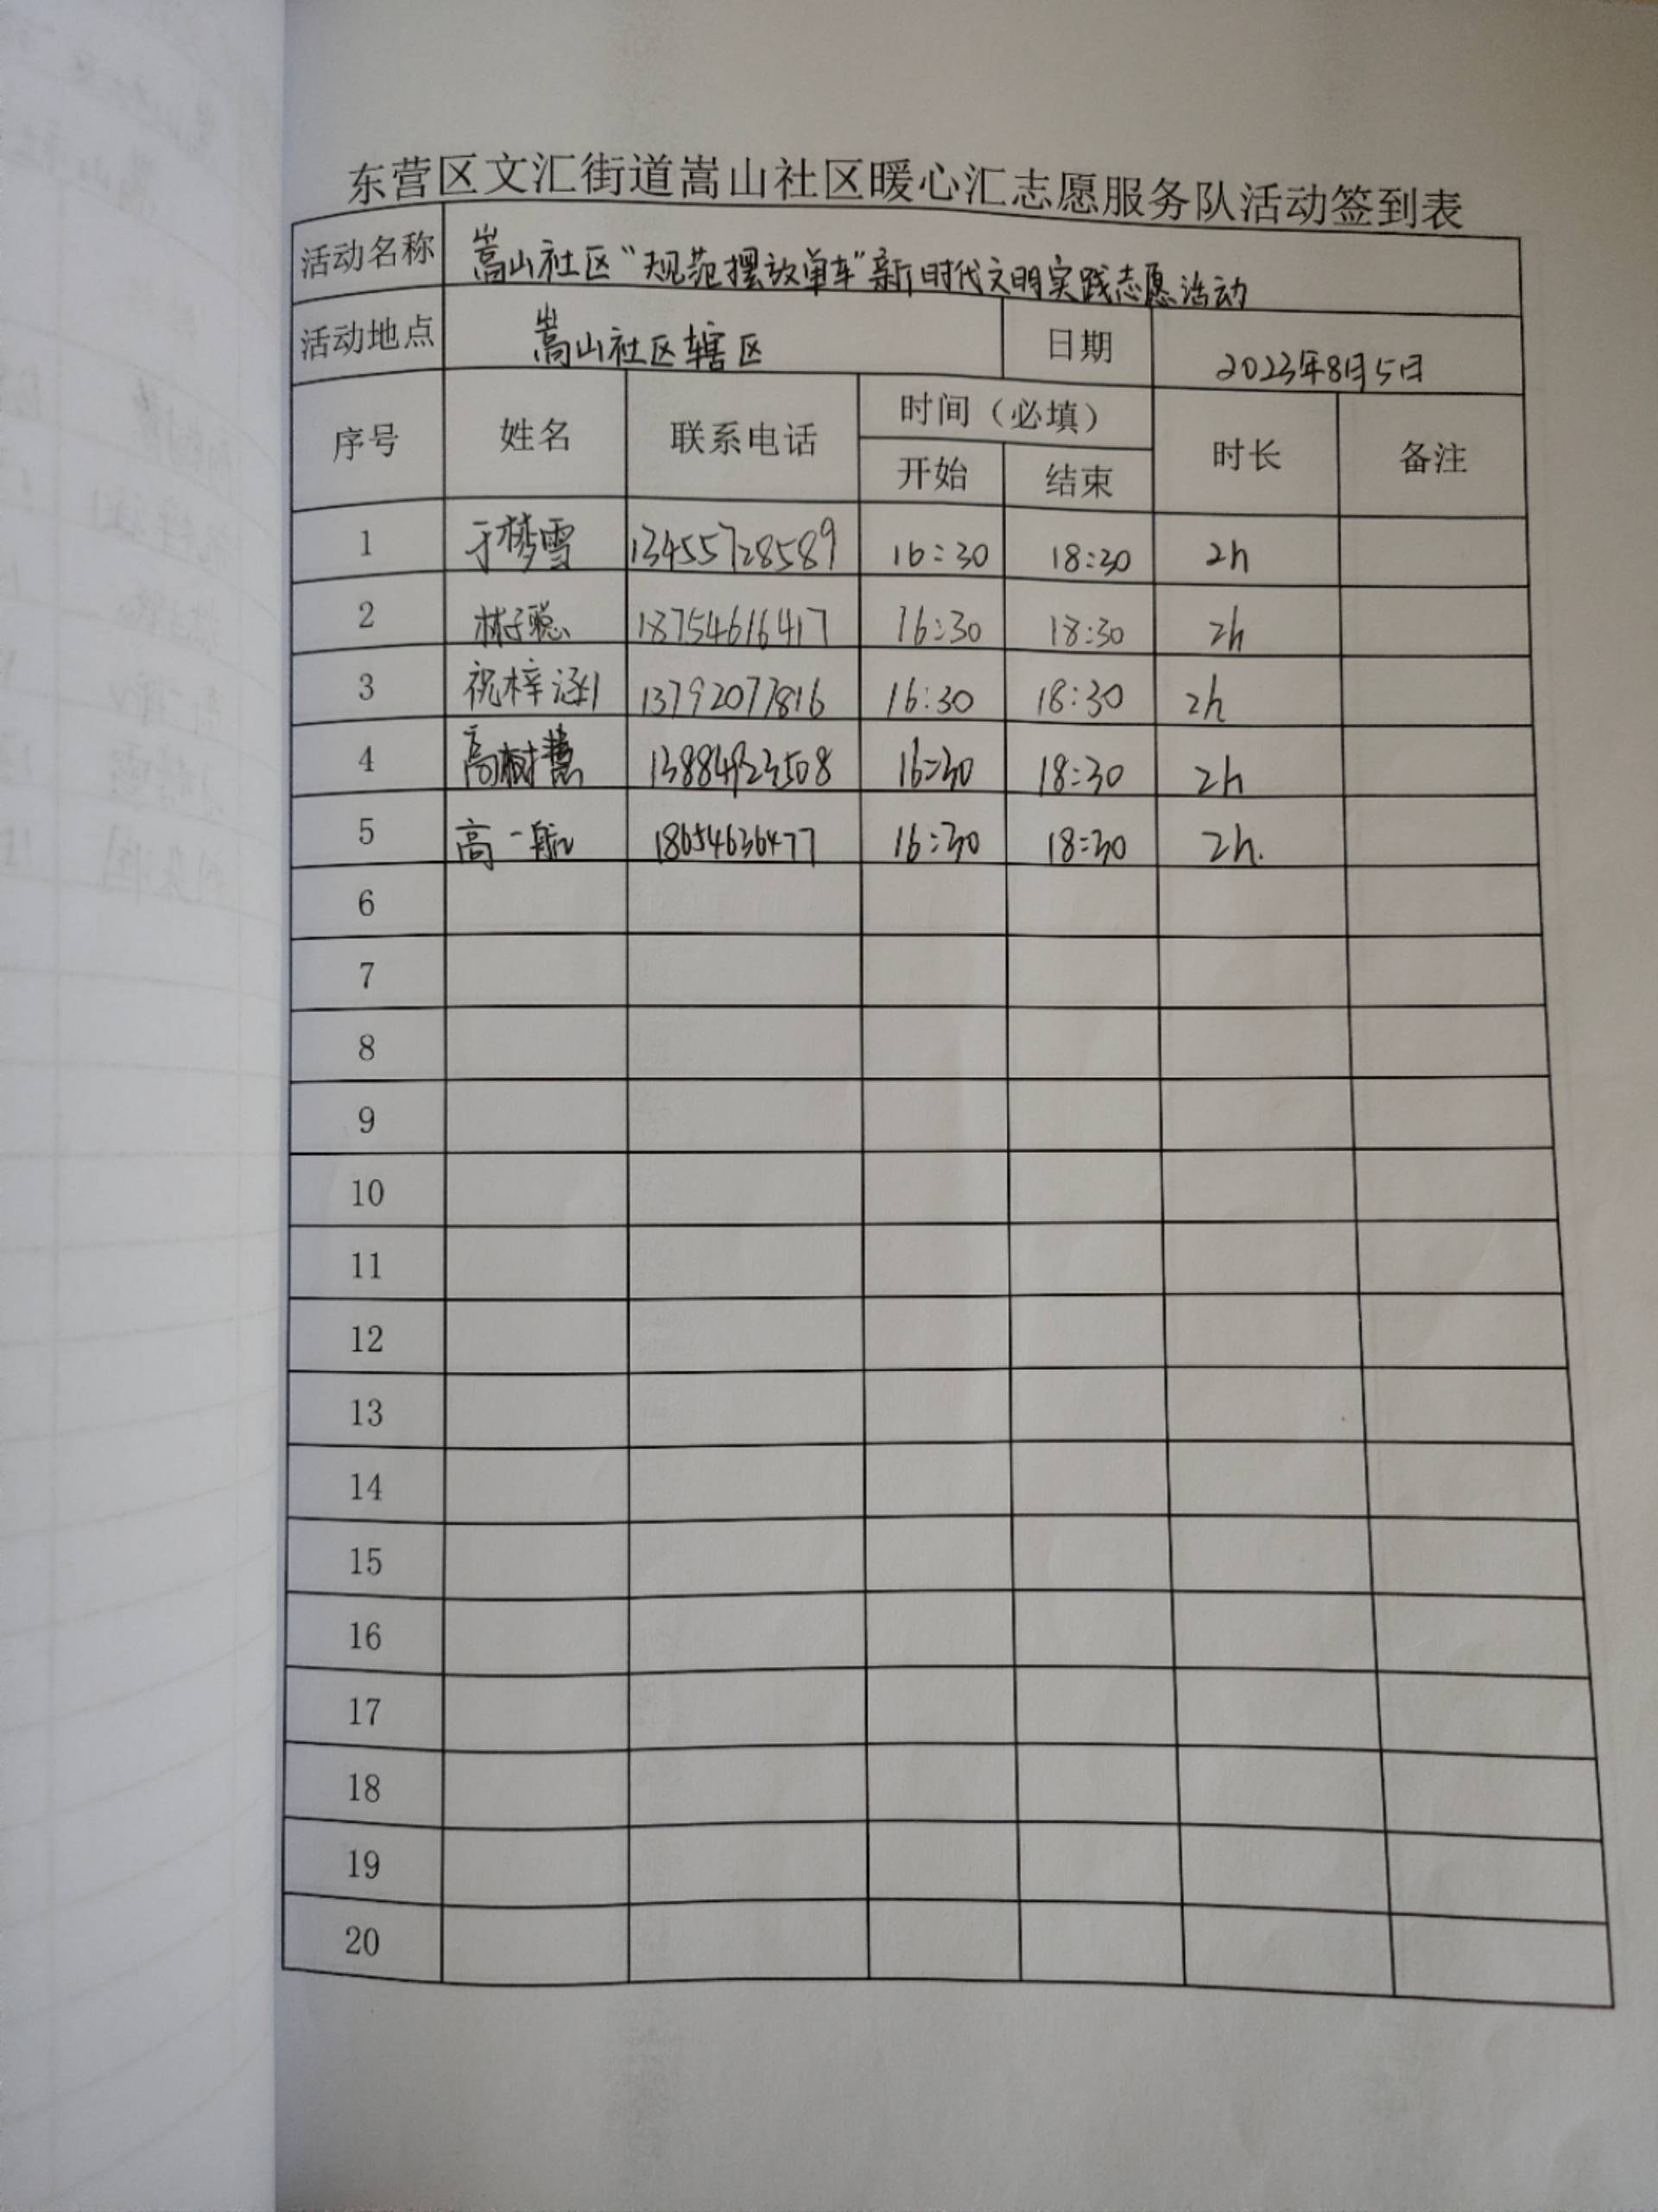 东营区文汇街道嵩山社区暖心汇志愿服务队活动签到表
活动名称 嵩山社区“规范摆放单车”新时代文明实践志愿活动
活动地点 嵩山社区辖区 日期 2023年8月5日
序号 姓名 联系电话 时间（必填） 时长 备注
开始 结束
1 于梦雪 13455728589 16:30 18:30 2h
2 林子聪 18754616417 16:30 18:30 2h
3 祝梓涵 13792077816 16:30 18:30 2h
4 高树慧 13884923508 16:30 18:30 2h
5 高一航 18654636477 16:30 18:30 2h.
6
7
8
9
10
11
12
13
14
15
16
17
18
19
20